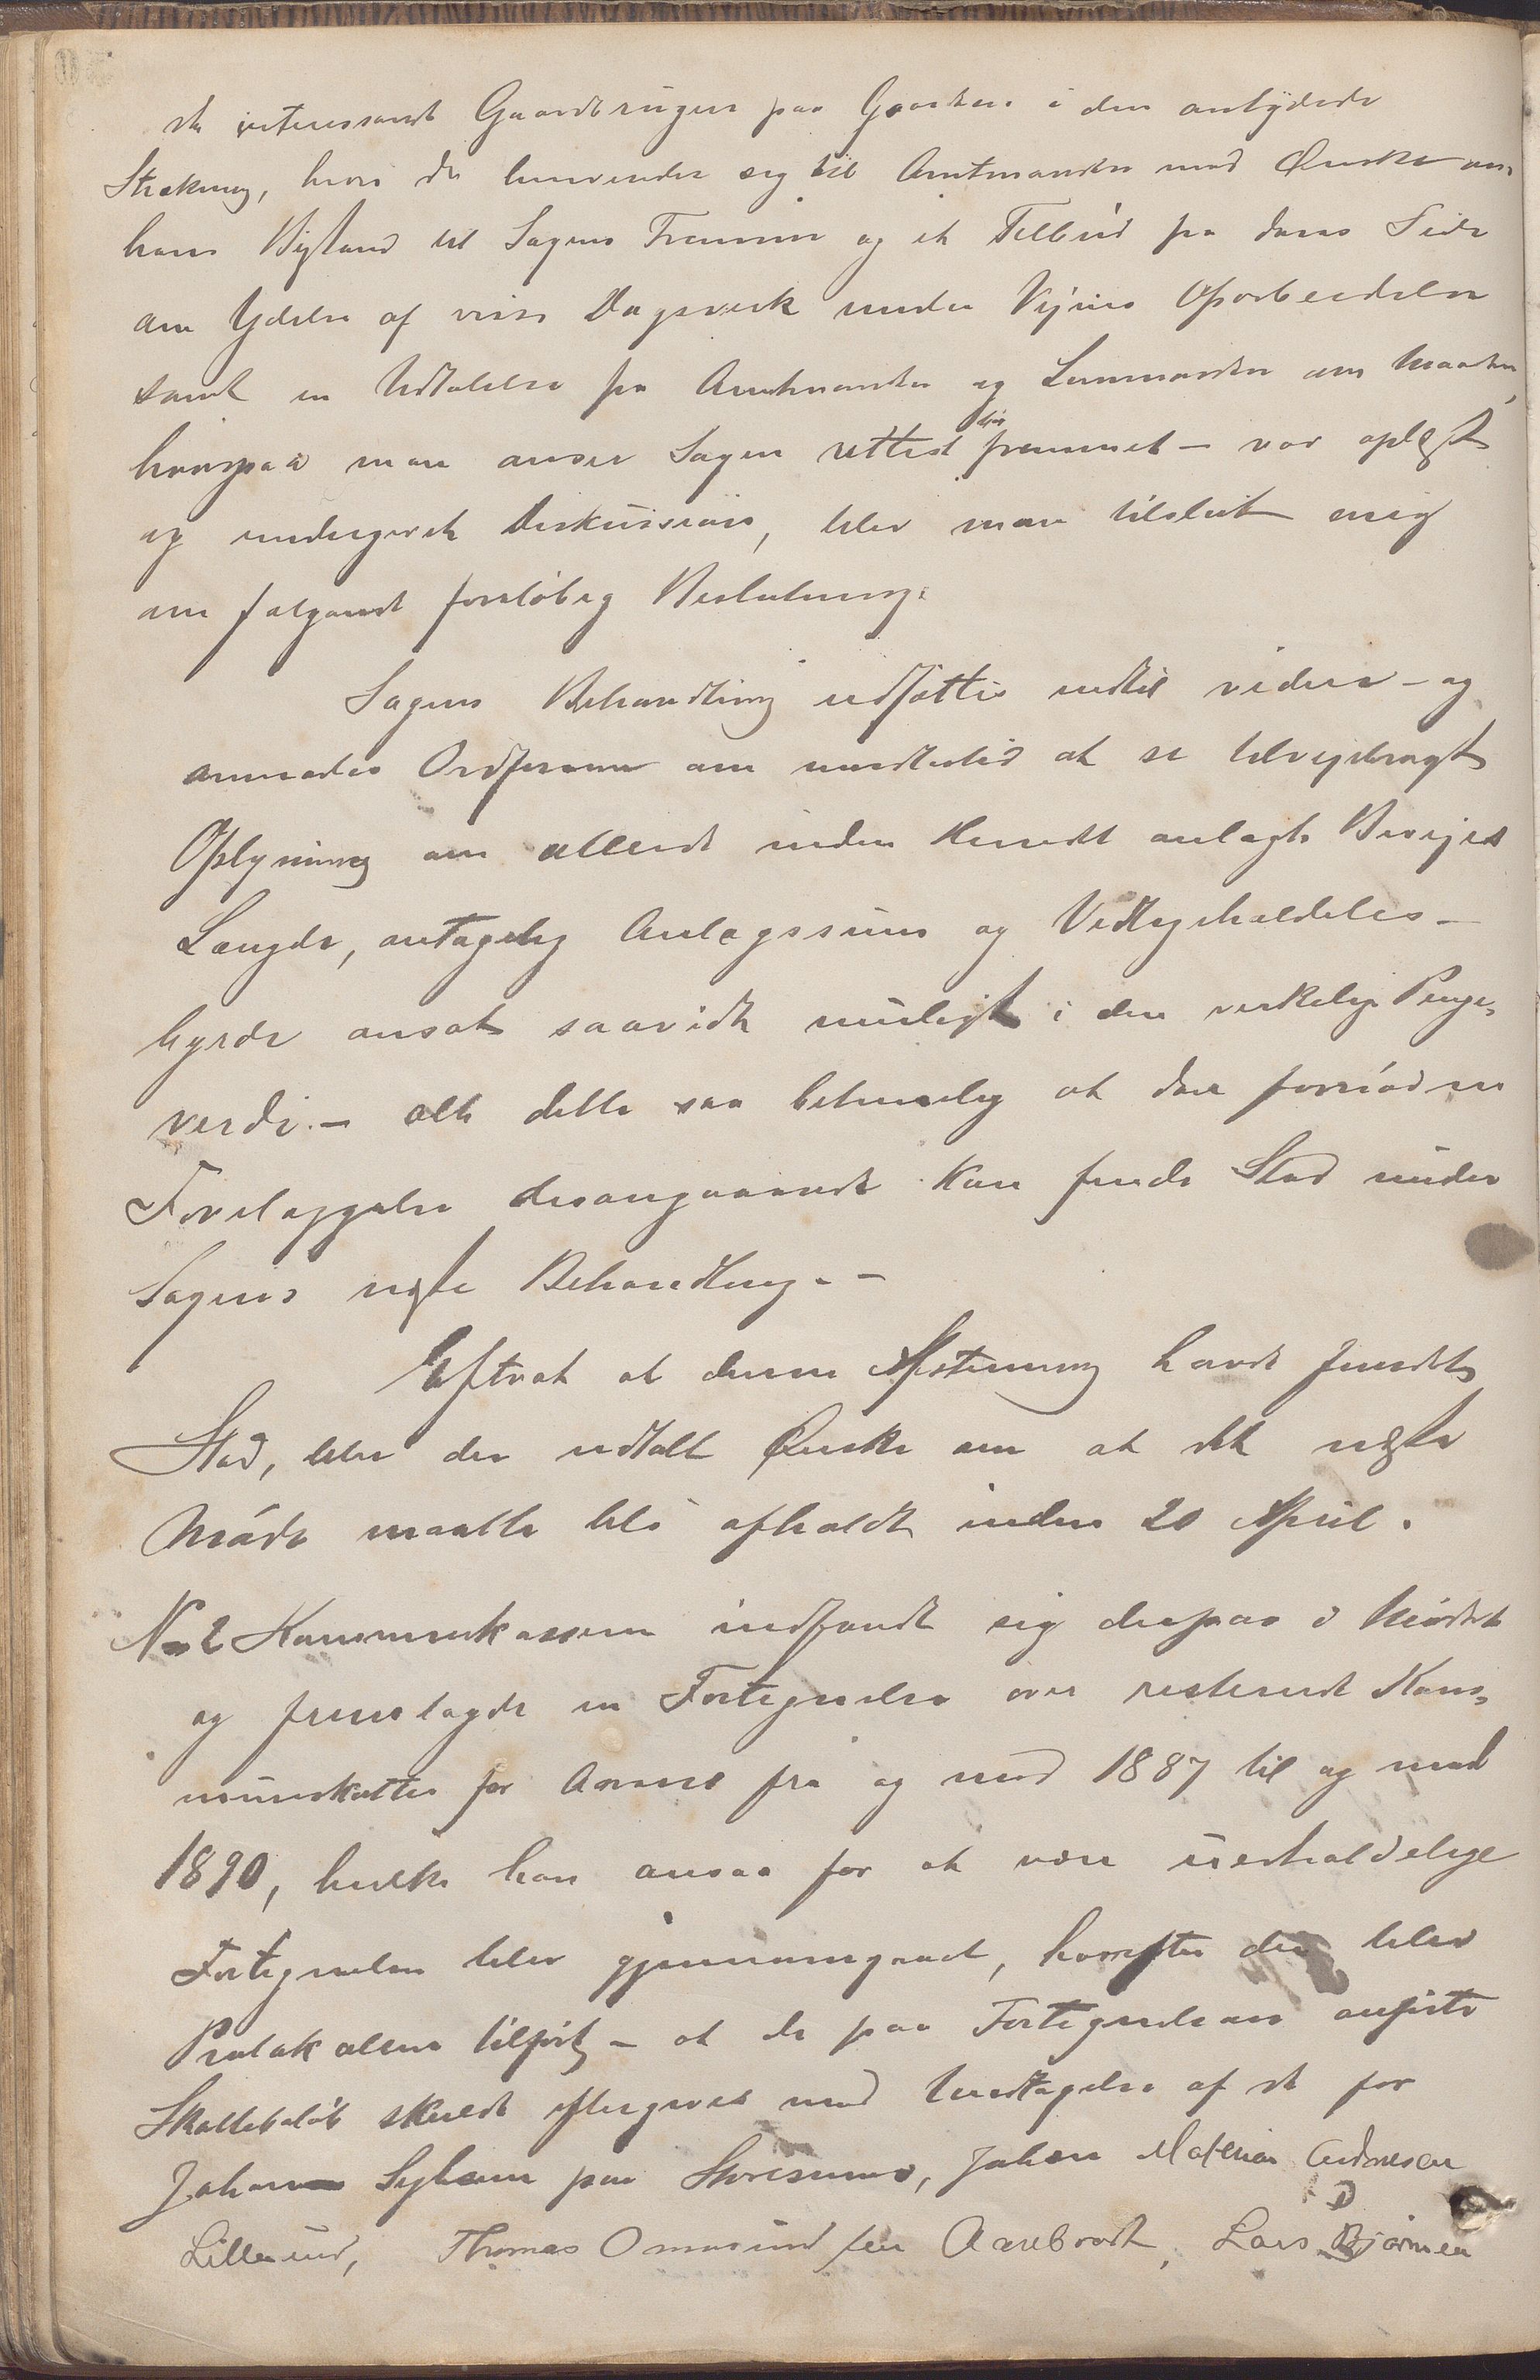 de interessant Gaardbruger paa Gaarden i den antydede
Strækning, hvori de henvender sig til Amtmanden med Ønske om
hans Bistand til Sagens Fremme og et Tilbud fra deres Side
om Ydelse af visse Dagsverk under Vejens Oparbeidelse
samt en Udtalelse fra Amtmanden og Lensmanden om Maaden,
hvorpaa man anser Sagen rettest bør fremmet – var oplæst
og undergivet Diskussion, blev man tilslut enig
om følgende foreløbig Beslutning:
Sagens Behandling udsættes indtil videre – og
anmodes Ordføreren om imidlertid at se tilvejebragt
Oplysning om allerede inden Herredet anlagte Bivejes
Længde, antagelig Anlægssum og Vedligeholdelses–
byrde ansat saavidt muligt i den virkelige Penge-
verdi. – alt dette saa betimelig at den fornødne
Forelæggelse desangaaende kan finde Sted under
Sagens næste Behandling. –
Efterat at denne Afstemning havde fundet
Sted, blev der udtalt Ønske om at det næste
Møde maatte bli afholdt inden 20 April.
No 2 Kommunekasseren indfandt sig derpaa i Mødet
og fremlagde en Fortegnelse over resterende Kom-
muneskatter for Aarene fra og med 1887 til og med
1890, hvilke han ansaa for at være uerholdelige
Fortegnelsen blev gjennemgaaet, hvorefter der blev
Protokollen tilført – at de paa Fortegnelsen anførte
Skattebeløb skulde eftergives med Undtagelse af de for
Johan paa Johan Andresen
Lillesund, Thomas Ommundsen Aarebrodt, Lars Bjørnsen